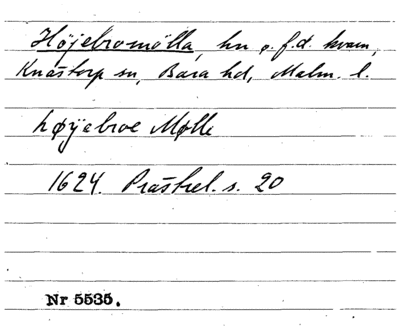 Højebromölla, hn o. f.d. kvarn,
Knästorp sn, Bara hd, Malm. l.
høyebroe Mølle
1624. Prästrel. s. 20
Nr 5535.